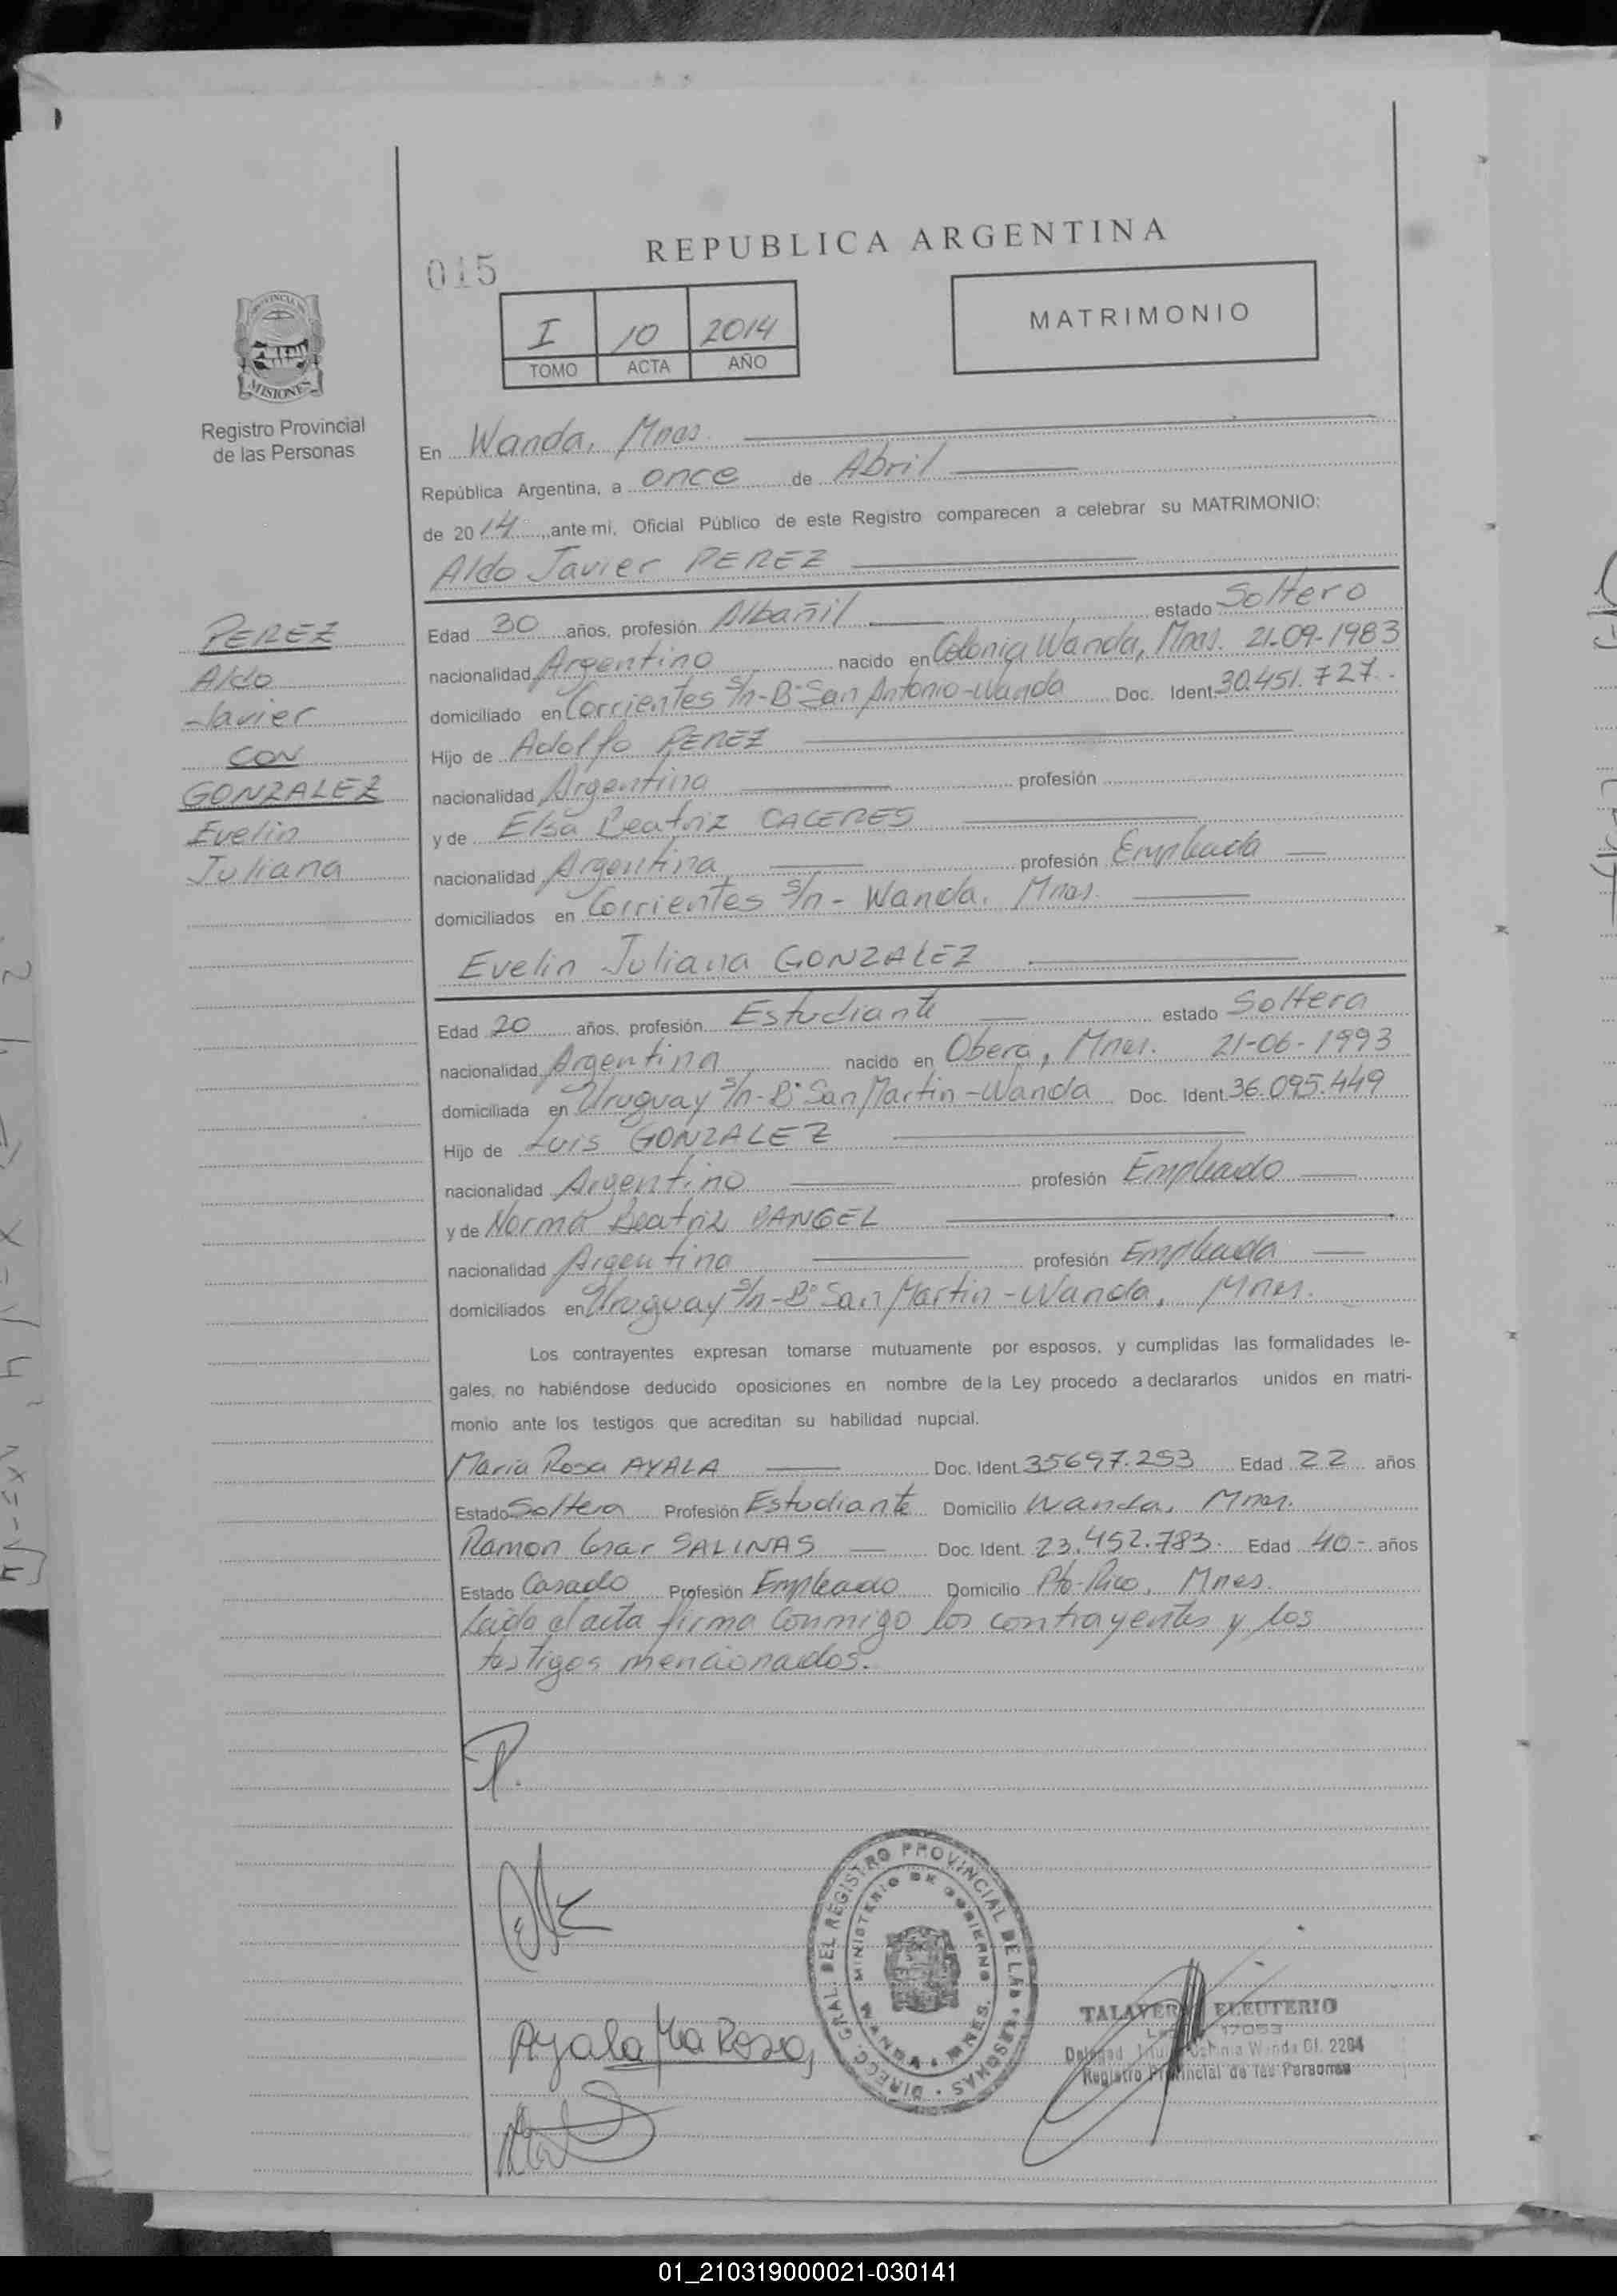 REPUBLICA ARGENTINA
015
I 10 2014
TOMO ACTA AÑO
MATRIMONIO
MISIONES
Registro Provincial
de las Personas
En Wanda, Mnes.
República Argentina, a once de Abril
de 2014, ante mi, Oficial Público de este Registro comparecen a celebrar su MATRIMONIO:
Aldo Javier PEREZ
PEREZ
Aldo
Javier
CON
GONZALEZ
Evelin
Juliana
Edad 30 años, profesión Albañil estado Soltero
nacionalidad Argentino nacido en Colonia Wanda, Mnes. 21-09-1983
domiciliado en Corrientes S/n-B° San Antonio-Wanda Doc. Ident. 30.451.727.
Hijo de Adolfo PEREZ
nacionalidad Argentina profesión
y de Elsa Beatriz CACERES
nacionalidad Argentina profesión Empleada
domiciliados en Corrientes S/n - Wanda, Mnes.
Evelin Juliana GONZALEZ
Edad 20 años, profesión Estudiante estado Soltera
nacionalidad Argentina nacido en Obera, Mnes. 21-06-1993
domiciliada en Uruguay S/n-B° San Martin-Wanda Doc. Ident. 36.095.449
Hijo de Luis GONZALEZ
nacionalidad Argentino profesión Empleado
y de Norma Beatriz RANGEL
nacionalidad Argentina profesión Empleada
domiciliados en Uruguay S/n-B° San Martin-Wanda, Mnes.
Los contrayentes expresan tomarse mutuamente por esposos, y cumplidas las formalidades le-
gales, no habiéndose deducido oposiciones en nombre de la Ley procedo a declararlos unidos en matri-
monio ante los testigos que acreditan su habilidad nupcial.
Maria Rosa AYALA Doc. Ident. 35697.253 Edad 22 años
Estado Soltera Profesión Estudiante Domicilio Wanda, Mnes.
Ramon Cesar SALINAS Doc. Ident. 23.452.783. Edad 40- años
Estado Casado Profesión Empleado Domicilio Pto-Rico, Mnes.
Leida el acta firma conmigo los contrayentes y los
testigos mencionados.
DIRECC. GRAL. DEL REGISTRO PROVINCIAL DE LAS PERSONAS
MINISTERIO DE GOBIERNO
WANDA MNES.
Ayala Ma Rosa
TALAVERA ELEUTERIO
17053
Colonia Wanda Of. 2204
Registro Provincial de las Personas
01_210319000021-030141